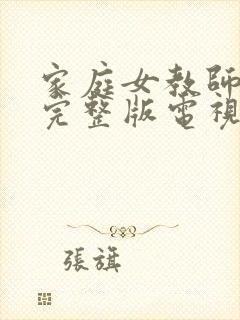 家庭女教師
完整版電視
張旗